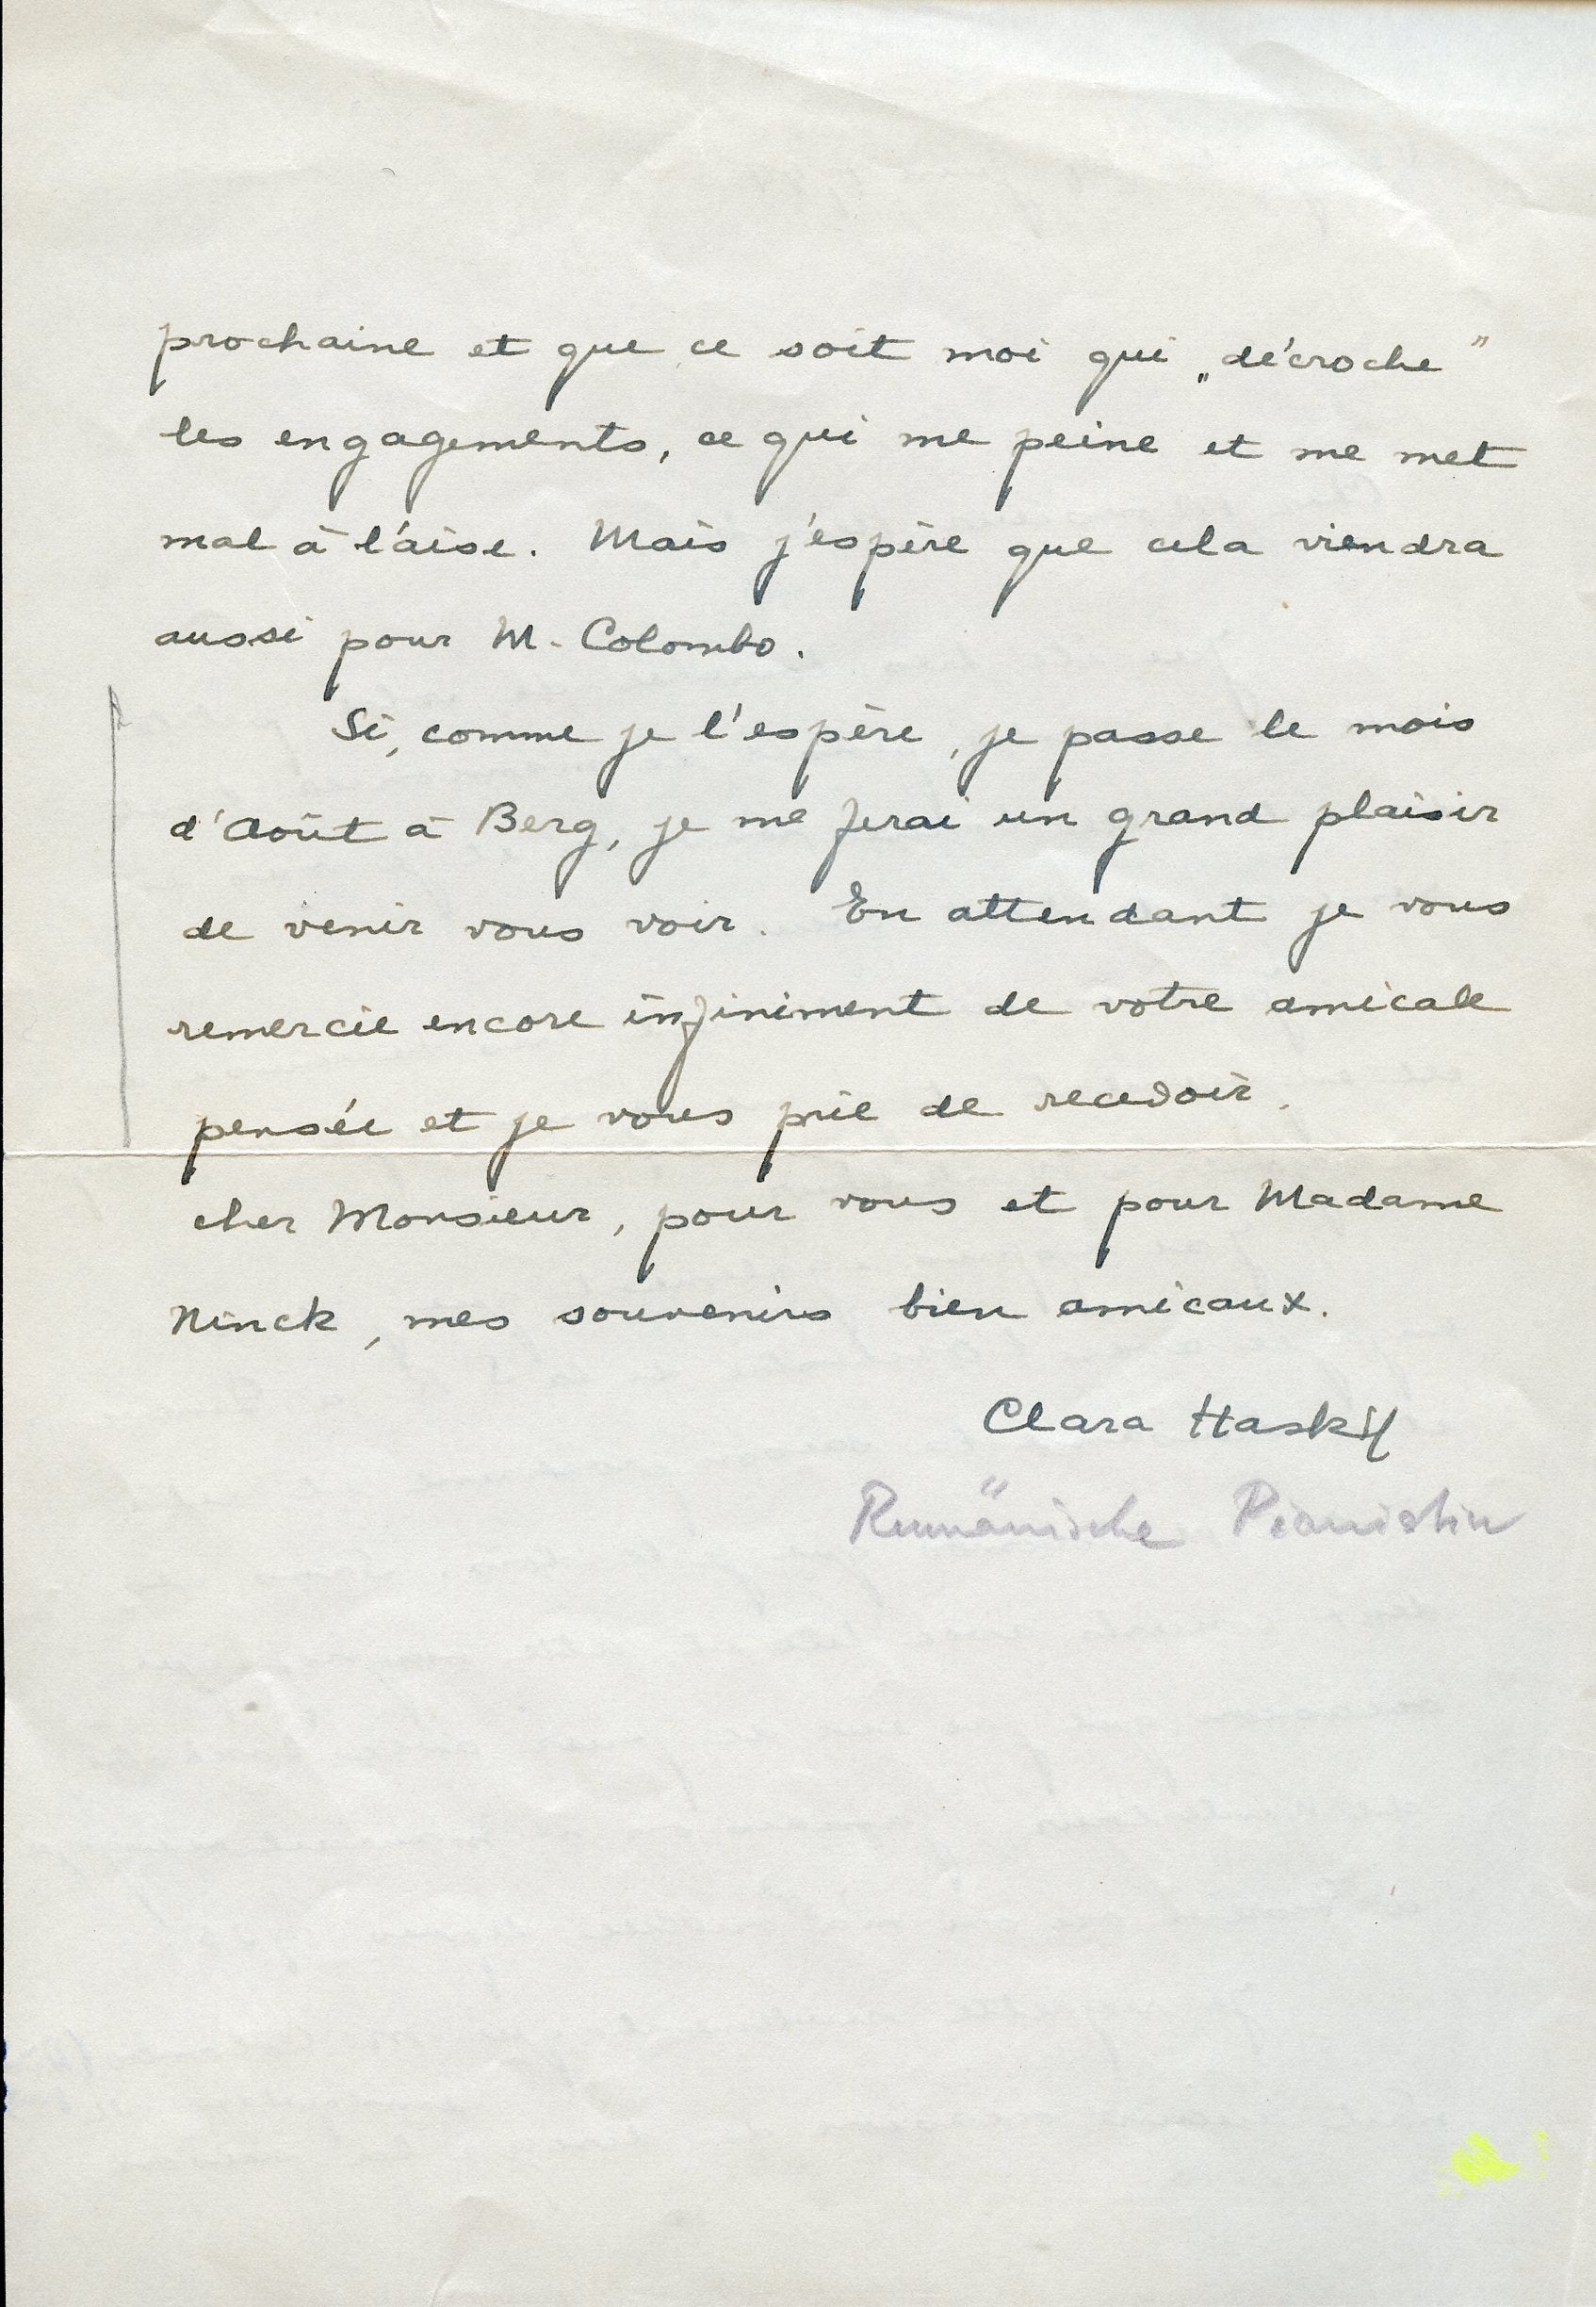 prochaine et que ce soit moi qui „décroche”
les engagements, ce qui me peine et me met
mal à l'aise. Mais j'espère que cela viendra
aussi pour M. Colombo.
Si, comme je l'espère, je passe le mois
d'Août à Berg, je me ferai un grand plaisir
de venir vous voir. En attendant je vous
remercie encore infiniment de votre amicale
pensée et je vous prie de recevoir,
cher Monsieur, pour vous et pour Madame
Ninck, mes souvenirs bien amicaux.
Clara Haskil
Rumänische Pianistin